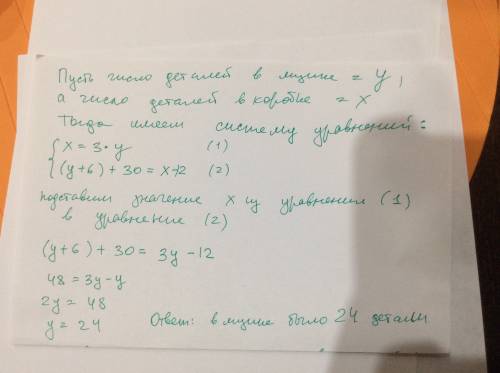 Пусть число деталей в ящике = y,
а число деталей в коробке = x
Тогда имеем систему уравнений:
{ x = 3·y (1)
(y+6) + 30 = x-12 (2)
подставим значение x из уравнения (1)
в уравнение (2)
(y+6) + 30 = 3y - 12
48 = 3y - y
2y = 48
y = 24 Ответ: в ящике было 24 детали